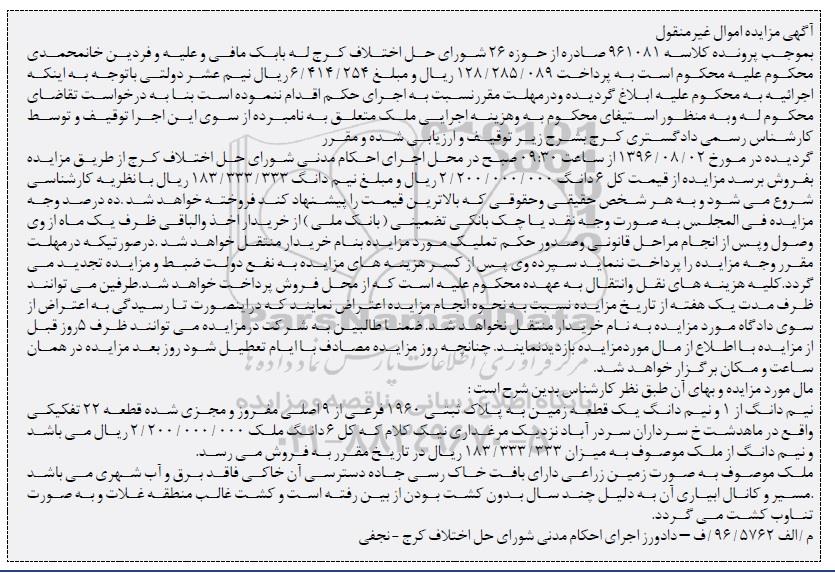 آگهی مزایده اموال غیرمنقول
بموجب پرونده کلاسه ۹۶۱۰۸۱ صادره از حوزه ۲۶ شورای حل اختلاف کرج له بابک مافی و علیه و فردین خانمحمدی
محکوم علیه محکوم است به پرداخت ۱۲۸/۲۸۵/۰۸۹ ریال و مبلغ ۶/۴۱۴/۲۵۴ ریال نیم عشر دولتی باتوجه به اینکه
اجرائیه به محکوم علیه ابلاغ گردیده ودرمهلت مقررنسبت به اجرای حکم اقدام ننموده است بنا به درخواست تقاضای
محکوم له وبه منظور استیفای محکوم به وهزینه اجرایی ملک متعلق به نامبرده از سوی این اجرا توقیف و توسط
کارشناس رسمی دادگستری کرج بشرح زیر توقیف و ارزیابی شده و مقرر
گردیده در مورخ ۱۳۹۶/۰۸/۰۲ از ساعت ۰۹:۳۰ صبح در محل اجرای احکام مدنی شورای حل اختلاف کرج از طریق مزایده
بفروش برسد مزایده از قیمت کل ۶ دانگ ۲/۲۰۰/۰۰۰/۰۰۰ ریال و مبلغ نیم دانگ ۱۸۳/۳۳۳/۳۳۳ ریال با نظریه کارشناسی
شروع می شود و به هر شخص حقیقی وحقوقی که بالاترین قیمت را پیشنهاد کند فروخته خواهد شد .ده درصد وجه
مزایده فی المجلس به صورت وجه نقد یا چک بانکی تضمینی (بانک ملی) از خریدار اخذ والباقی ظرف یک ماه از وی
وصول وپس از انجام مراحل قانونی وصدور حکم تملیک مورد مزایده بنام خریدار منتقل خواهد شد .درصورتیکه درمهلت
مقرر وجه مزایده را پرداخت ننماید سپرده وی پس از کسر هزینه های مزایده به نفع دولت ضبط و مزایده تجدید می
گردد.کلیه هزینه های نقل وانتقال به عهده محکوم علیه است که از محل فروش پرداخت خواهد شد.طرفین می توانند
ظرف مدت یک هفته از تاریخ مزایده نسبت به نحوه انجام مزایده اعتراض نمایند که در اینصورت تا رسیدگی به اعتراض از
سوی دادگاه مورد مزایده به نام خریدار منتقل نخواهد شد. ضمنا طالبین به شرکت درمزایده می توانند ظرف ۵روز قبل
از مزایده با اطلاع از مال موردمزایده بازدیدنمایند. چنانچه روز مزایده مصادف با ایام تعطیل شود روز بعد مزایده در همان
ساعت و مکان برگزار خواهد شد.
مال مورد مزایده و بهای آن طبق نظر کارشناس بدین شرح است:
نیم دانگ از ۱ و نیم دانگ یک قطعه زمین به پلاک ثبتی ۱۹۶۰ فرعی از ۹ اصلی مفروز و مجزی شده قطعه ۲۲ تفکیکی
واقع در ماهدشت خ سرداران سردر آباد نزدیک مرغداری نیک کلام که کل ۶ دانگ ملک ۲/۲۰۰/۰۰۰/۰۰۰ ریال می باشد
و نیم دانگ از ملک موصوف به میزان ۱۸۳/۳۳۳/۳۳۳ ریال در تاریخ مقرر به فروش می رسد.
ملک موصوف به صورت زمین زراعی دارای بافت خاک رسی جاده دسترسی آن خاکی فاقد برق و آب شهری می باشد
.مسیر و کانال ابیاری آن به دلیل چند سال بدون کشت بودن از بین رفته است و کشت غالب منطقه غلات و به صورت
تناوب کشت می گردد.
م/الف ۹۶/۵۷۶۲/ف – دادورز اجرای احکام مدنی شورای حل اختلاف کرج - نجفی
ParsNamadData
مرکز فرآوری اطلاعات پارس نماد داده ها
پایگاه اطلاع رسانی مناقصه و مزایده
۰۲۱-۸۸۳۴۹۶۷۰-۵